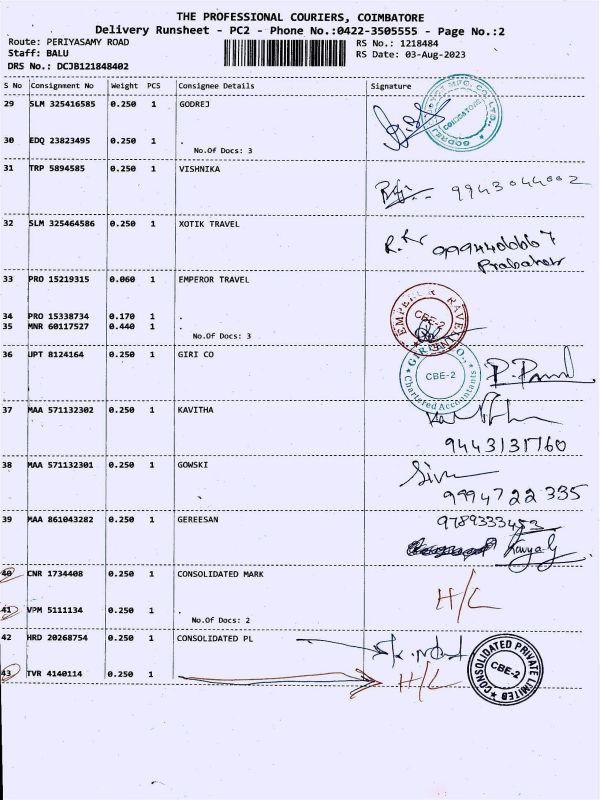 THE PROFESSIONAL COURIERS, COIMBATORE
Delivery Runsheet - PC2 - Phone No.:0422-3505555 - Page No.:2
Route: PERIYASAMY ROAD
Staff: BALU
DRS No.: DCJB121848402
RS No.: 1218484
RS Date: 03-Aug-2023
S No Consignment No Weight PCS Consignee Details Signature
29 SLM 325416585 0.250 1 GODREJ
COIMBATORE
30 EDQ 23823495 0.250 1 .
No.Of Docs: 3
31 TRP 5894585 0.250 1 VISHNIKA
9943044002
32 SLM 325464586 0.250 1 XOTIK TRAVEL
R.K 9994406667
Prabaher
33 PRO 15219315 0.060 1 EMPEROR TRAVEL
34 PRO 15338734 0.170 1 .
35 MNR 60117527 0.440 1 .
No.Of Docs: 3
EMPEROR TRAVEL
CBE-2
36 UPT 8124164 0.250 1 GIRI CO
CBE-2
Chartered Accountants
37 MAA 571132302 0.250 1 KAVITHA
9443131760
38 MAA 571132301 0.250 1 GOWSKI
9994722335
39 MAA 861043282 0.250 1 GEREESAN
9789333453
Kavya G
40 CNR 1734408 0.250 1 CONSOLIDATED MARK
H/L
41 VPM 5111134 0.250 1 .
No.Of Docs: 2
42 HRD 20268754 0.250 1 CONSOLIDATED PL
43 TVR 4140114 0.250 1
H/L
CONSOLIDATED PRIVATE LIMITED
CBE-2